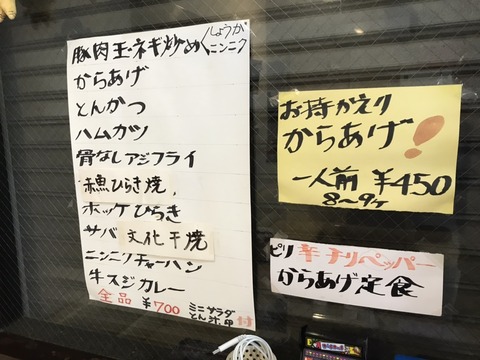 豚肉玉ネギ炒め〈しょうが
ニンニク
からあげ
とんかつ
ハムカツ
骨なしアジフライ
赤魚ひらき焼
ホッケひらき
サバ文化干焼
ニンニクチャーハン
牛スジカレー
全品 ¥700 ミニサラダ
とん汁、卵付
お持かえり
からあげ!
一人前 ¥450
8〜9ケ
ピリ辛チリペッパー
からあげ定食